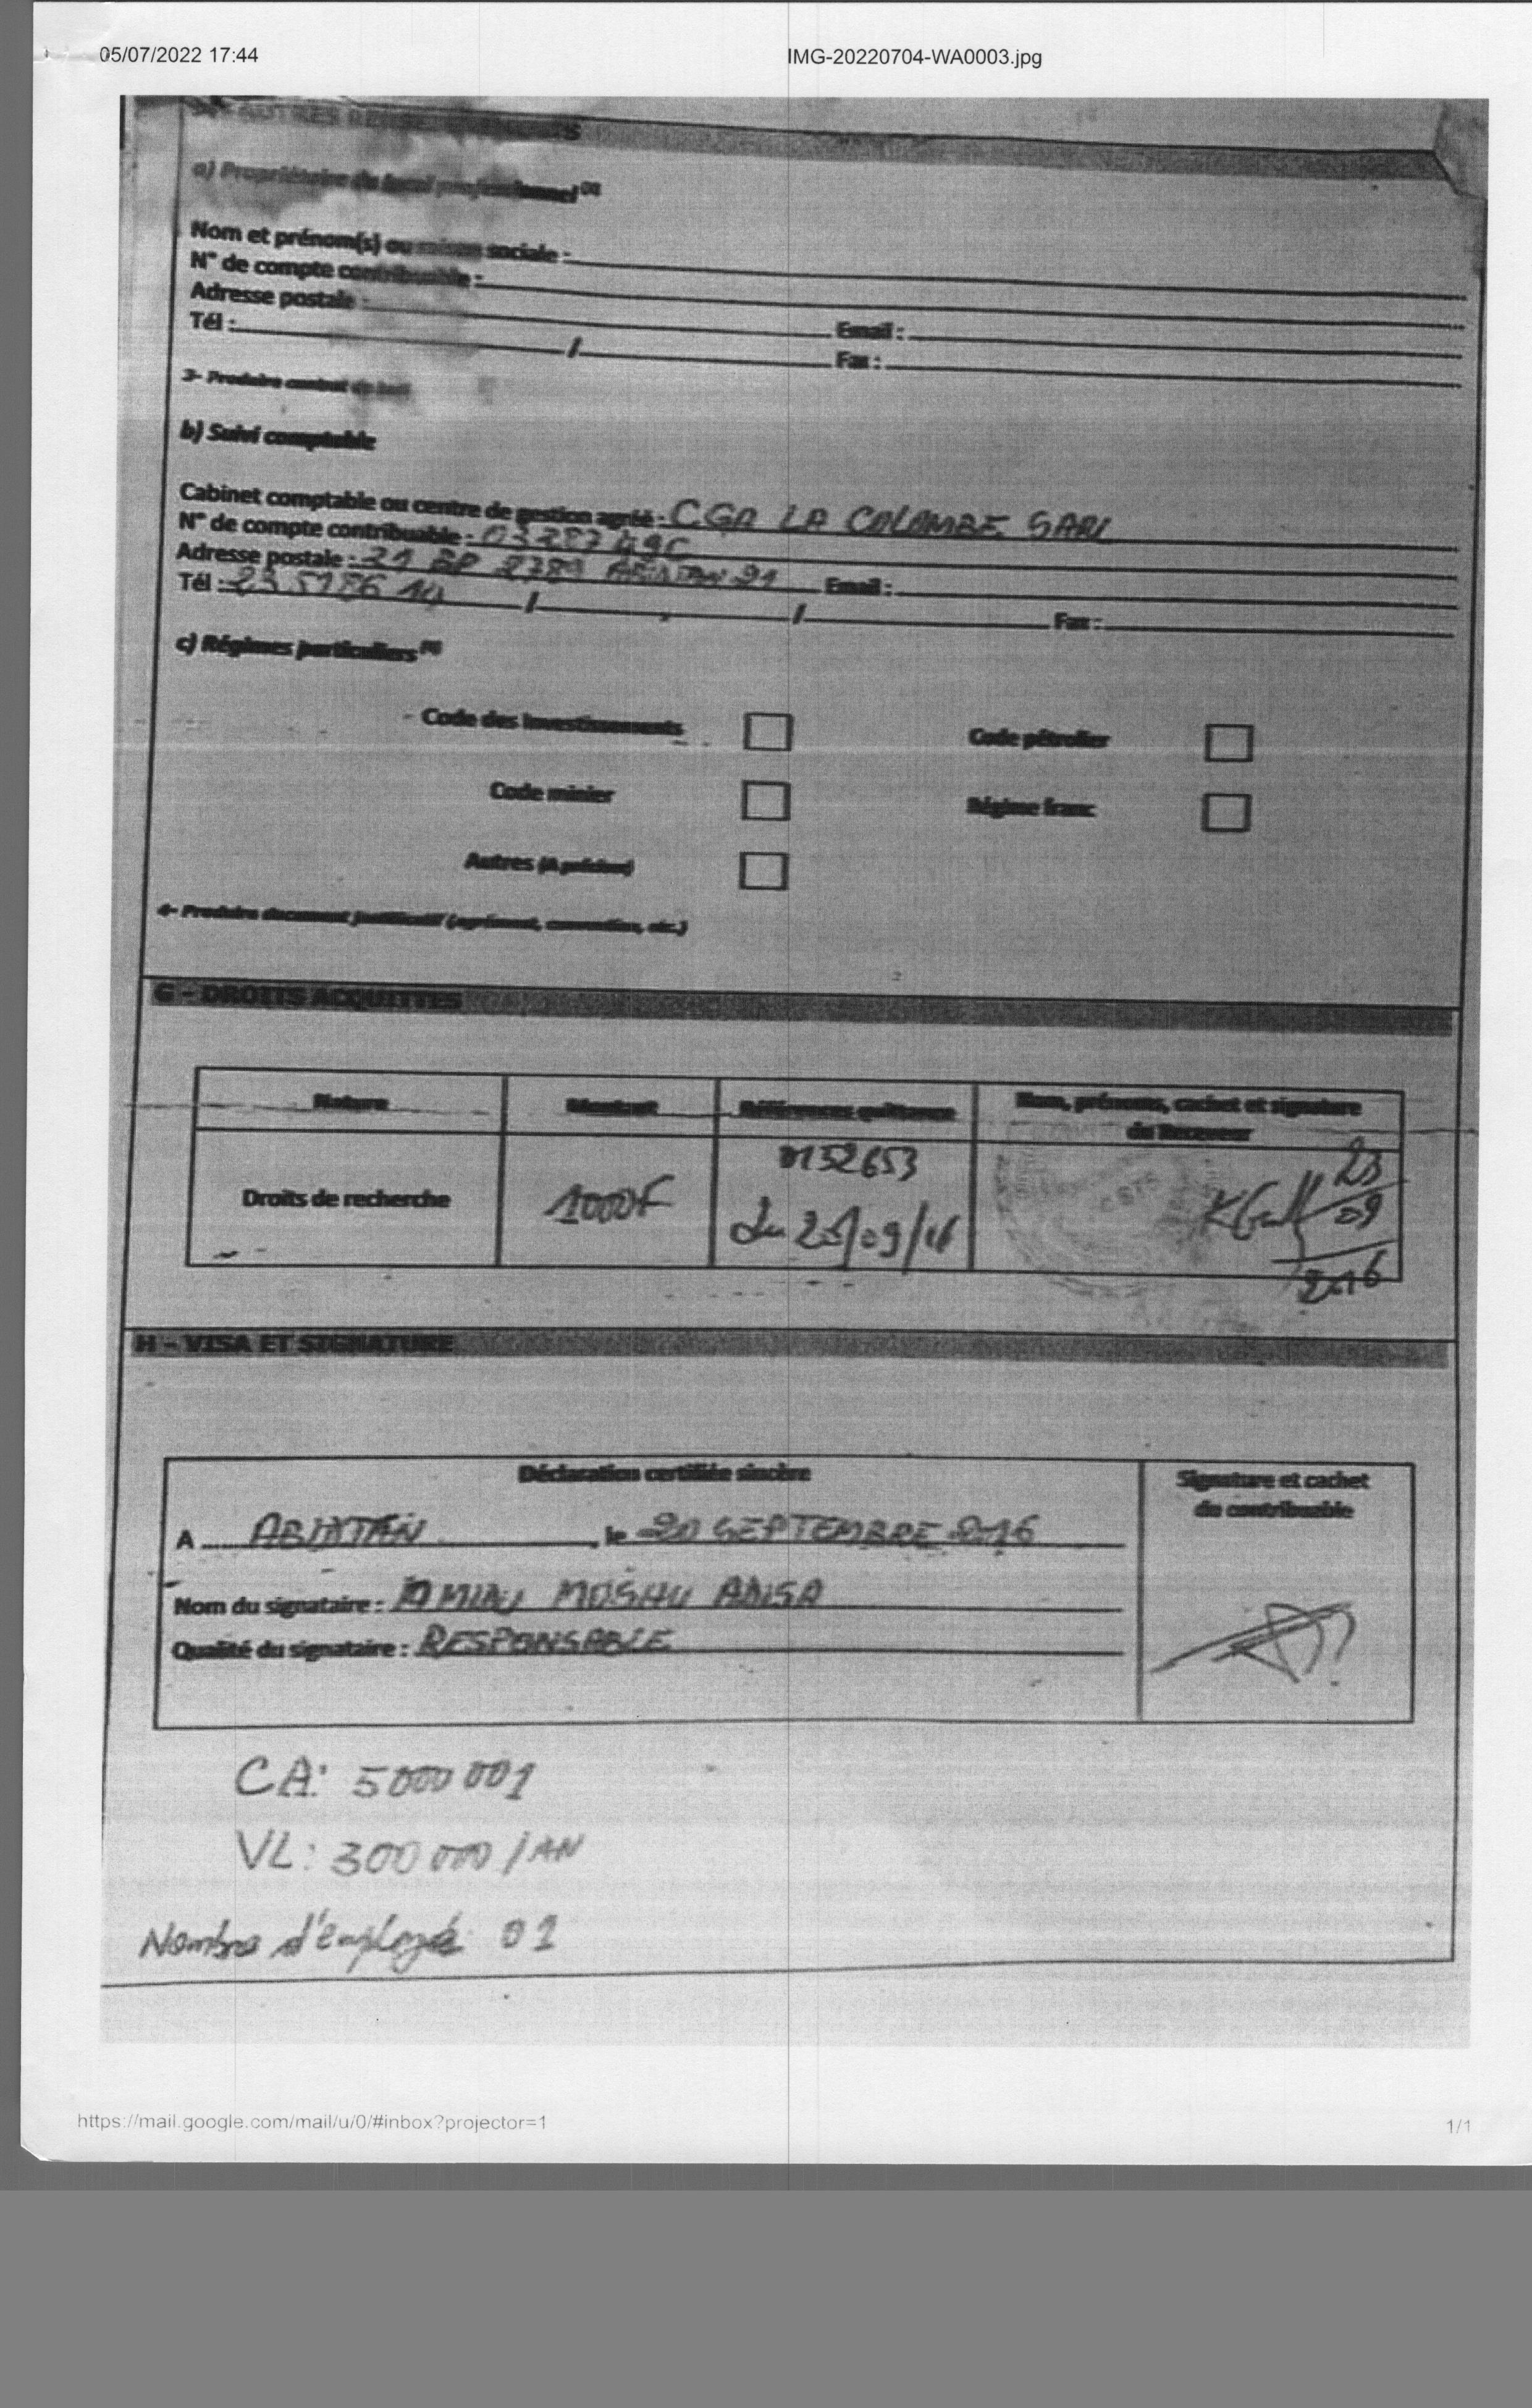 05/07/2022 17:44 IMG-20220704-WA0003.jpg
AUTRES RENSEIGNEMENTS
a) Propriétaire du local professionnel (3)
Nom et prénom(s) ou raison sociale :
N° de compte contribuable :
Adresse postale : Email :
Tél : / Fax :
3- Produire contrat de bail
b) Suivi comptable
Cabinet comptable ou centre de gestion agréé : CGA LA COLOMBE SARL
N° de compte contribuable :
Adresse postale : 21 BP 2789 ABIDJAN 21 Email :
Tél : 23 51 86 14 / / Fax :
c) Régimes particuliers (4)
- Code des Investissements Code pétrolier
Code minier Régime franc
Autres (A préciser)
4- Produire document justificatif (agrément, convention, etc.)
G - DROITS ACQUITTES
Nature Montant Références quittance Nom, prénoms, cachet et signature
du Receveur
0152653
Droits de recherche 1000F 23
du 23/09/16 09
2016
H - VISA ET SIGNATURE
Déclaration certifiée sincère Signature et cachet
du contribuable
A ABIDJAN, le 20 SEPTEMBRE 2016
Nom du signataire : AMINU MOSHU ADISA
Qualité du signataire : RESPONSABLE
CA: 5000 001
VL: 300 000 / AN
Nombre d'employé 01
https://mail.google.com/mail/u/0/#inbox?projector=1 1/1